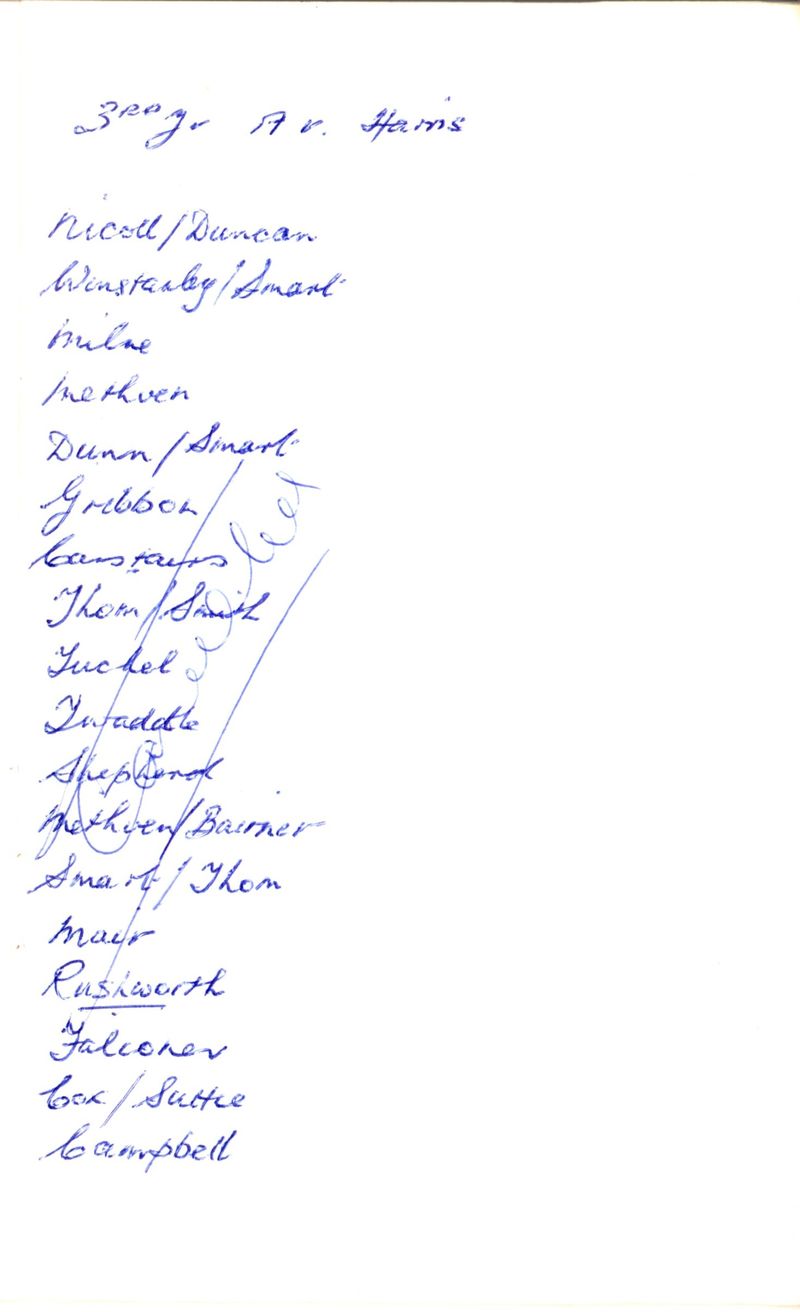 3RD Yr A v. Harris
Nicoll/Duncan
Winstanley/Smart
Milne
Methven
Dunn/Smart
Gribbon
Carstairs
Thom/Smith
Tuckel
Twaddle
Shepherd
Methven/Bairner
Smart/Thom
Mair
Rushworth
Falconer
Cox/Suttie
Campbell